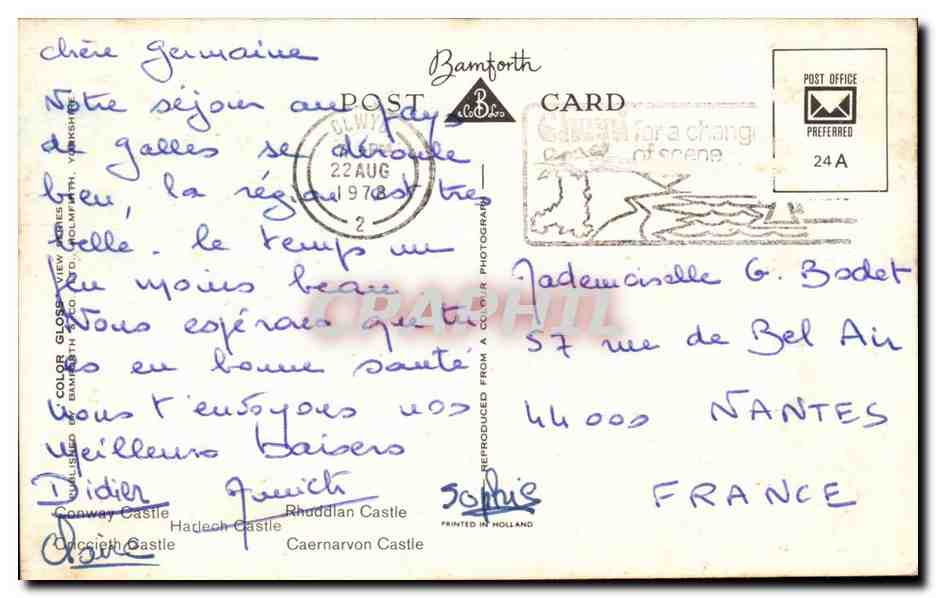 chère Germaine
Notre séjour au pays
de Galles se déroule
bien, la région est très
belle. le temps un
peu moins beau
Nous espérons que tu
es en bonne santé
nous t'envoyons nos
meilleurs baisers
Didier
Sophie
Claire
Bamforth
POST CARD
& Co B Ltd
CLWYD
22 AUG
1978
2
Clwyd for a change
of scene
POST OFFICE
PREFERRED
24 A
Mademoiselle G. Bodet
57 rue de Bel Air
44000 NANTES
FRANCE
COLOR GLOSS VIEW SERIES
PUBLISHED BY BAMFORTH & CO. LTD., HOLMFIRTH, YORKSHIRE
REPRODUCED FROM A COLOUR PHOTOGRAPH
Conway Castle
Rhuddlan Castle
Harlech Castle
Criccieth Castle
Caernarvon Castle
PRINTED IN HOLLAND
CPAPHIL